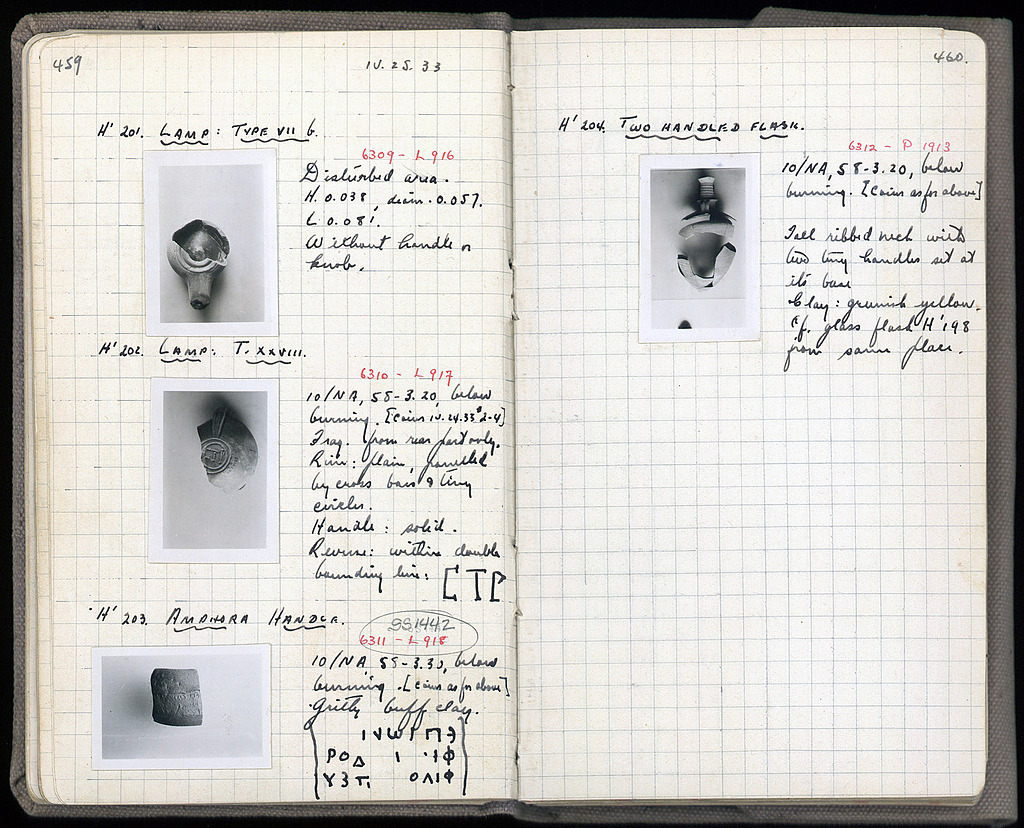 459
IV. 25. 33
H' 201. LAMP: TYPE VII b.
6309 - L 916
Disturbed area.
H. 0.038, diam. 0.057.
L 0.081.
Without handle or
knob.
H' 202. LAMP: T. XXVIII.
6310 - L 917
10/NA, 58-3.20, below
burning. [Coins IV.24.33 #2-4]
Frag. from rear part only.
Rim: plain, panelled
by cross bars & tiny
circles.
Handle: solid.
Reverse: within double
bounding line:
H' 203. AMPHORA HANDLE.
SS1442
6311 - L 918
10/NA, 55-3.30, below
burning. [Coins as for above]
Gritty buff clay.
460.
H' 204. TWO HANDLED FLASK.
6312 - P 1913
10/NA, 58-3.20, below
burning. [Coins as for above]
Tall ribbed neck with
two tiny handles set at
its base
Clay: greenish yellow.
Cf. glass flask H'198
from same place.